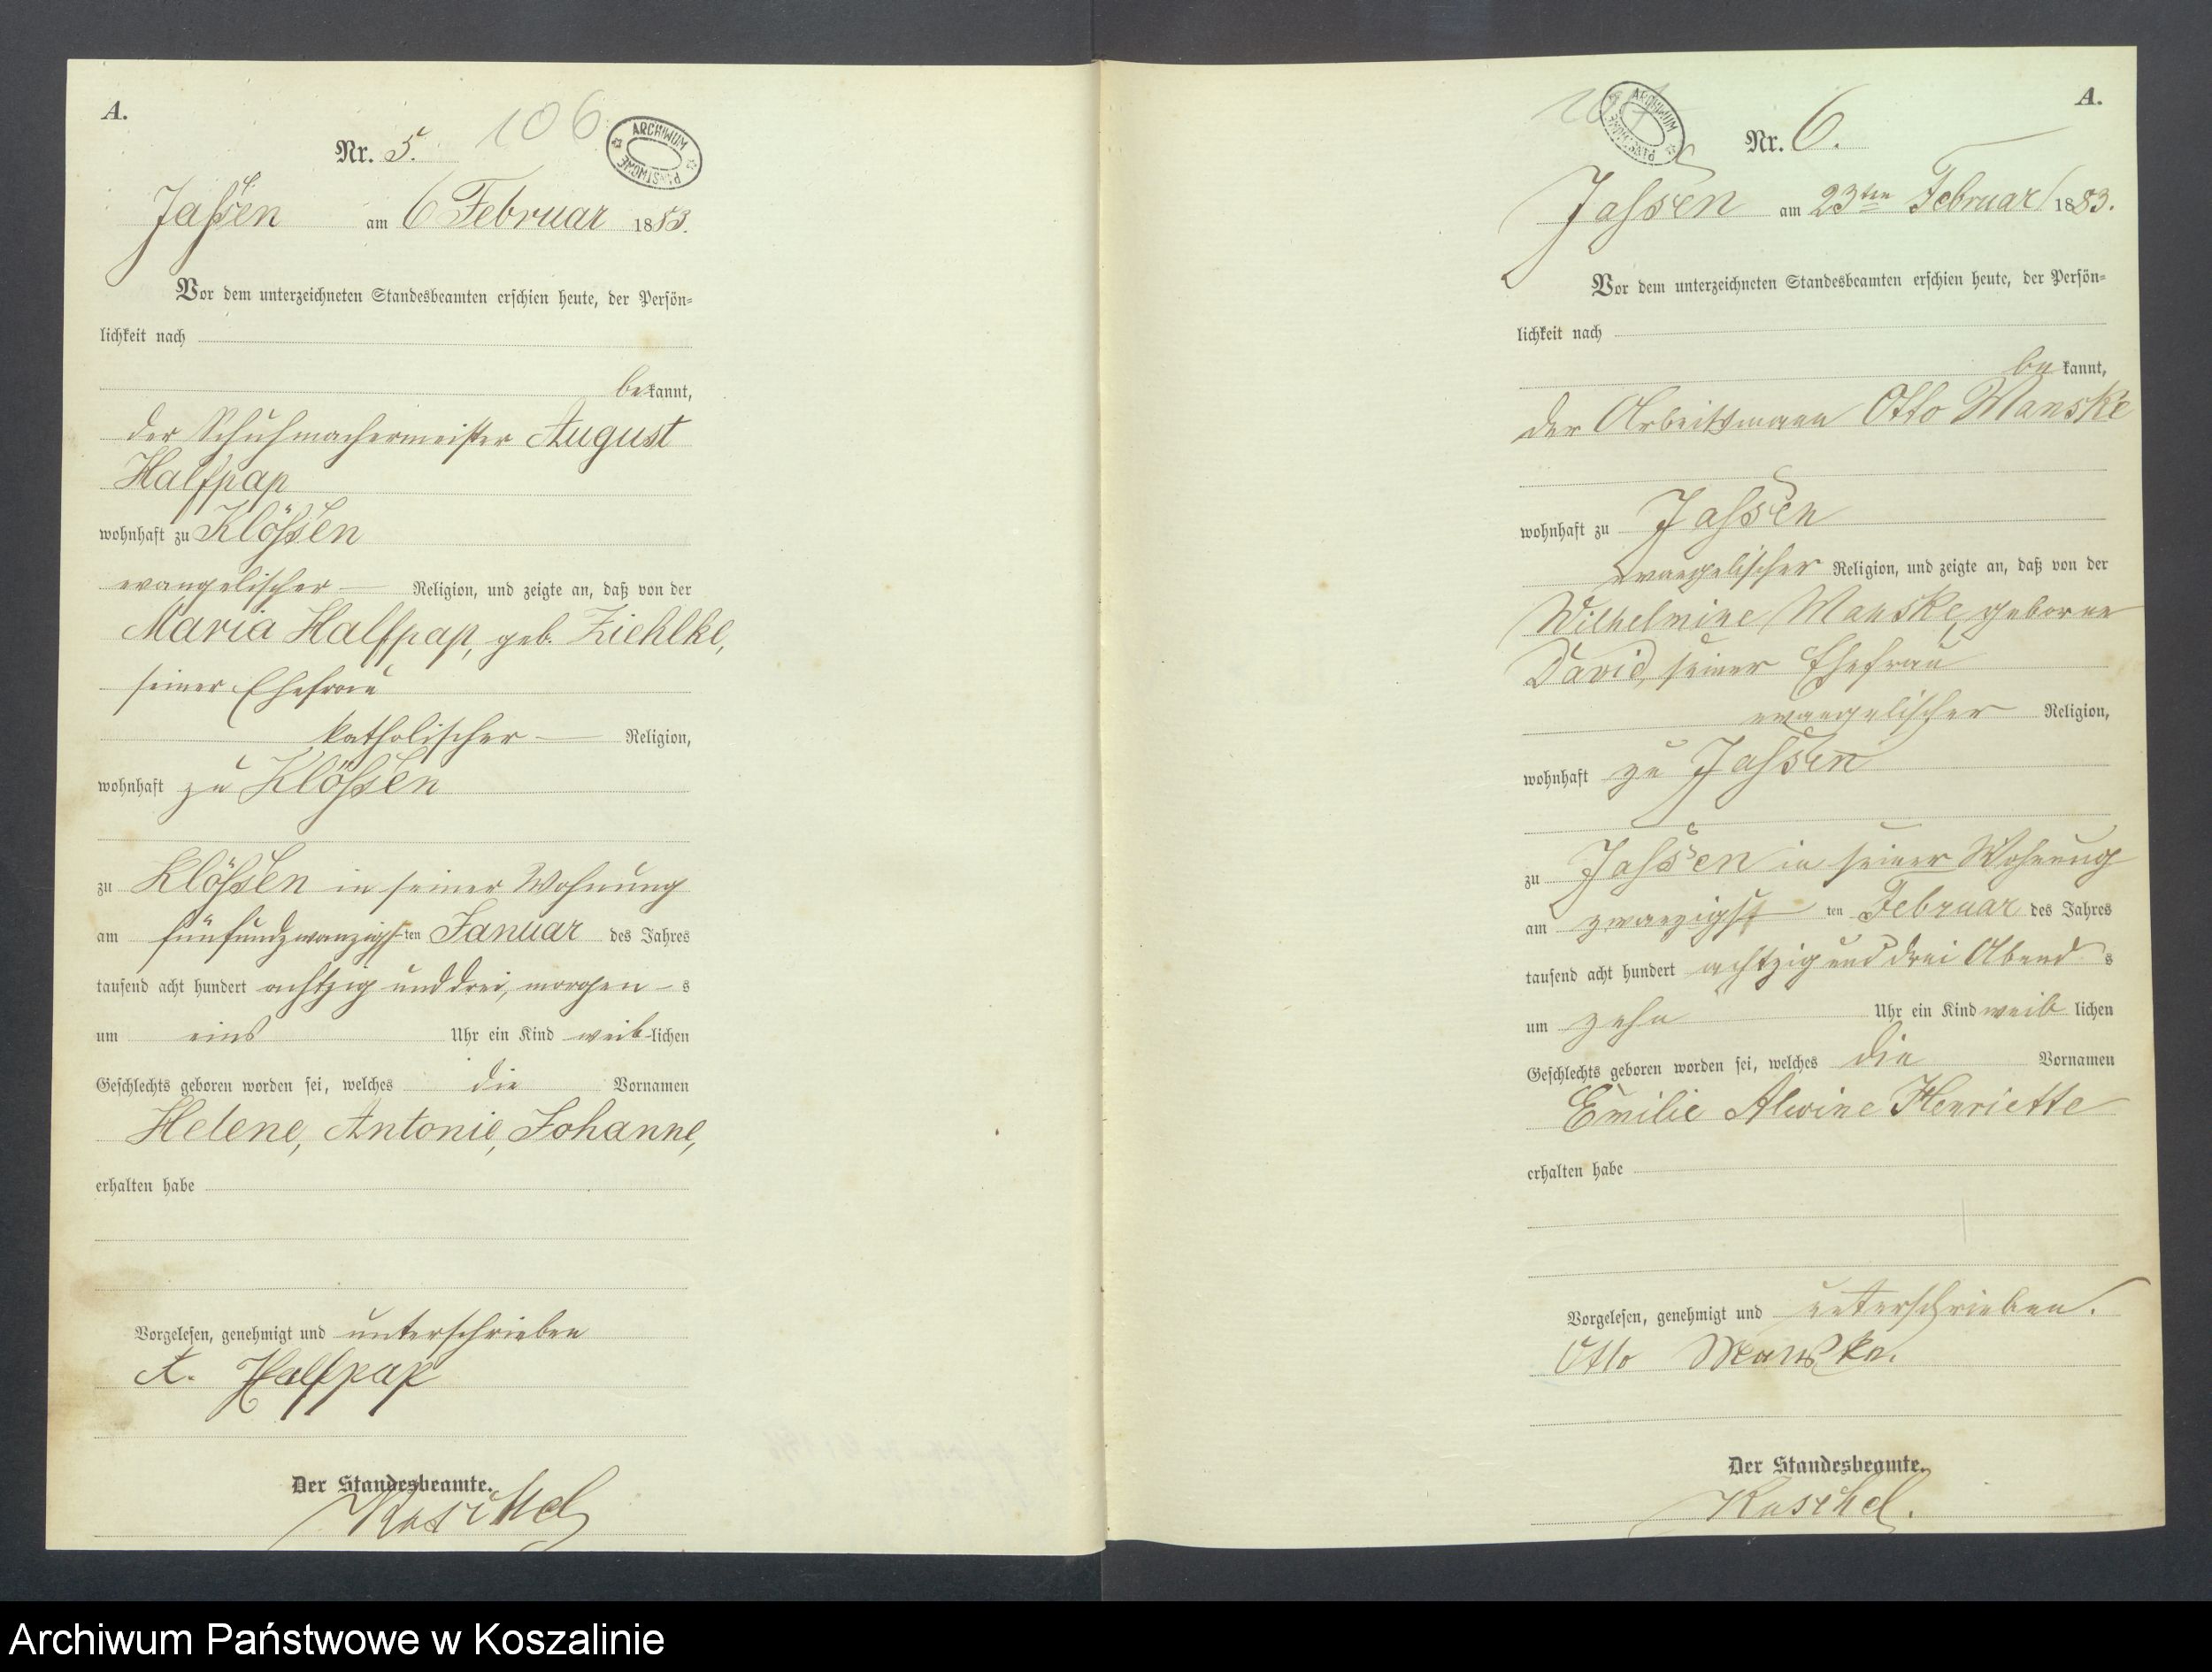 A.
Nr. 5.
106
ARCHIWUM PAŃSTWOWE
Jaßsen am 6 Februar 1883.
Vor dem unterzeichneten Standesbeamten erschien heute, der Persön-
lichkeit nach
bekannt,
der Schuhmachermeister August
Halfpap
wohnhaft zu Klößsen
evangelischer — Religion, und zeigte an, daß von der
Maria Halfpap, geb. Ziehlke,
seiner Ehefrau
katholischer — Religion,
wohnhaft zu Klößsen
zu Klößsen in seiner Wohnung
am fünfundzwanzigsten Januar des Jahres
tausend acht hundert achtzig und drei, morgen - s
um eins Uhr ein Kind weiblichen
Geschlechts geboren worden sei, welches die Vornamen
Helene, Antonie, Johanne,
erhalten habe
Vorgelesen, genehmigt und unterschrieben
A. Halfpap
Der Standesbeamte.
Raschke
A.
107
ARCHIWUM PAŃSTWOWE
Nr. 6.
Jaßsen am 23ten Februar 1883.
Vor dem unterzeichneten Standesbeamten erschien heute, der Persön-
lichkeit nach
bekannt,
der Arbeitsmann Otto Manske
wohnhaft zu Jaßsen
evangelischer Religion, und zeigte an, daß von der
Wilhelmine Manske, geborne
David, seiner Ehefrau
evangelischer Religion,
wohnhaft zu Jaßsen
zu Jaßsen in seiner Wohnung
am zwanzigsten Februar des Jahres
tausend acht hundert achtzig und drei Abends
um zehn Uhr ein Kind weiblichen
Geschlechts geboren worden sei, welches die Vornamen
Emilie Alwine Henriette
erhalten habe
Vorgelesen, genehmigt und unterschrieben.
Otto Manske.
Der Standesbeamte.
Archiwum Państwowe w Koszalinie